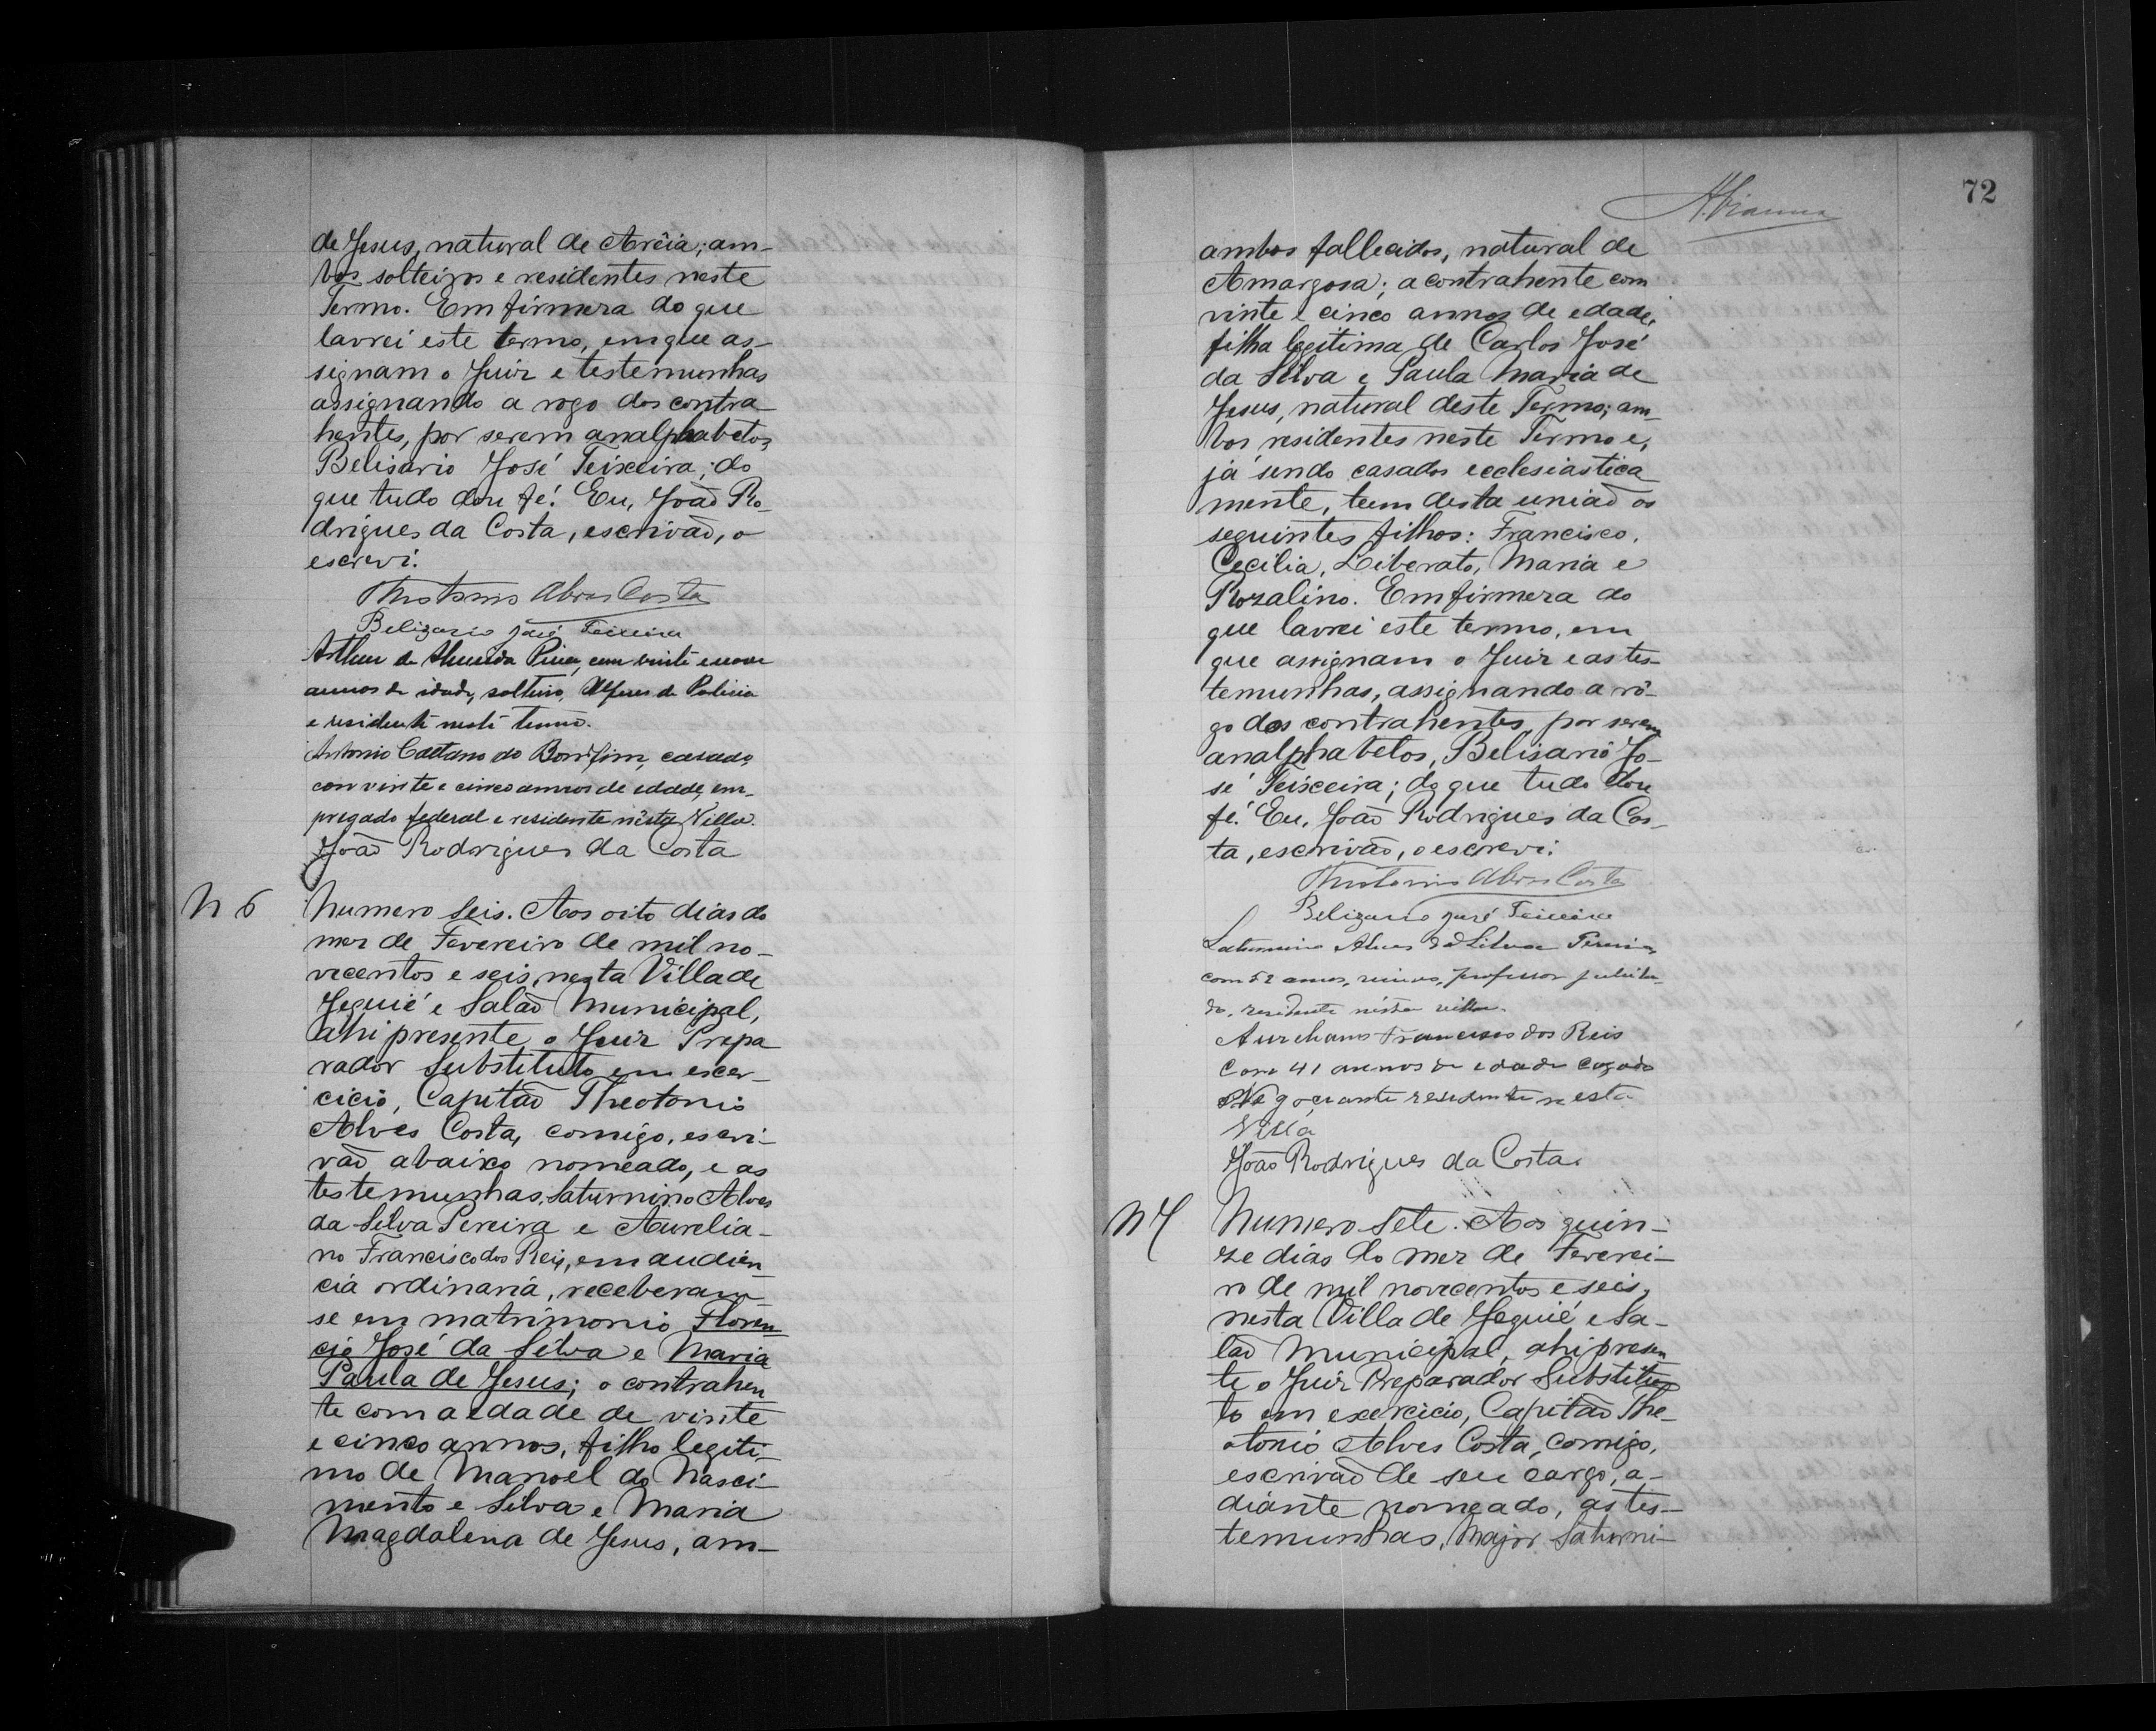 de Jesus, natural de Arêia; am-
bos solteiros e residentes neste
Termo. Em firmeza do que
lavrei este termo, em que as-
signam o Juiz e testemunhas
assignando a rogo dos contra-
hentes, por serem analphabetos,
Belisario José Teixeira; do
que tudo dou fé. Eu, João Ro-
drigues da Costa, escrivão, o
escrevi.
Theotonio Alves Costa
Belizario José Teixeira
Arthur de Almeida, com vinte e nove
annos de idade, solteiro, Alferes de Policia
e residente neste termo.
Antonio Caetano do Bomfim, casado,
com vinte e cinco annos de edade, em-
pregado federal e residente nésta Villa.
João Rodrigues da Costa
N 6
Numero Seis. Aos oito dias do
mez de Fevereiro de mil no-
vecentos e seis, nesta Villa de
Jequié e Salão Municipal,
ahi presente o Juiz Prepa
rador Substituto em exer-
cicio, Capitão Theotonio
Alves Costa, comigo, escri-
vão abaixo nomeado, e as
testemunhas, Saturnino Alves
da Silva Pereira e Aurelia-
no Francisco dos Reis, em audien-
cia ordinaria, receberam-
se em matrimonio Floren
cio José da Silva e Maria
Paula de Jesus; o contrahen
te com a edade de vinte
e cinco annos, filho legiti-
mo de Manoel do Nasci-
mento e Silva e Maria
Magdalena de Jesus, am-
72
ambos fallecidos, natural de
Amargosa; a contrahente com
vinte e cinco annos de edade,
filha legitima de Carlos José
da Silva e Paula Maria de
Jesus, natural deste Termo; am-
bos residentes neste Termo e,
já sendo casados ecclesiastica
mente, teem desta união os
seguintes filhos: Francisco,
Cecilia, Liberato, Maria e
Rozalino. Em firmeza do
que lavrei este termo, em
que assignam o Juiz e as tes-
temunhas, assignando a rô-
go dos contrahentes, por serem
analphabetos, Belisario Jo-
sé Teixeira; do que tudo dou
fé. Eu, João Rodrigues da Cos-
ta, escrivão, o escrevi.
Theotonio Alves Costa
Belizario José Teixeira
Saturnino Alves da Silva Pereira,
com 52 annos, viuvo, professor jubila-
do, residente nésta villa.
Aureliano Francisco dos Reis
Com 41 annos de edade cazado
Negociante residente nesta
Villa
João Rodrigues da Costa.
N 7
Numero Sete. Aos quin-
ze dias do mez de Feverei-
ro de mil novecentos e seis,
nesta Villa de Jequié e Sa-
lão Municipal, ahi presen
te o Juiz Preparador Substitu
to em exercicio, Capitão The-
otonio Alves Costa, comigo,
escrivão de seu cargo, a-
diante nomeado, as tes-
temunhas, Major Saturni-